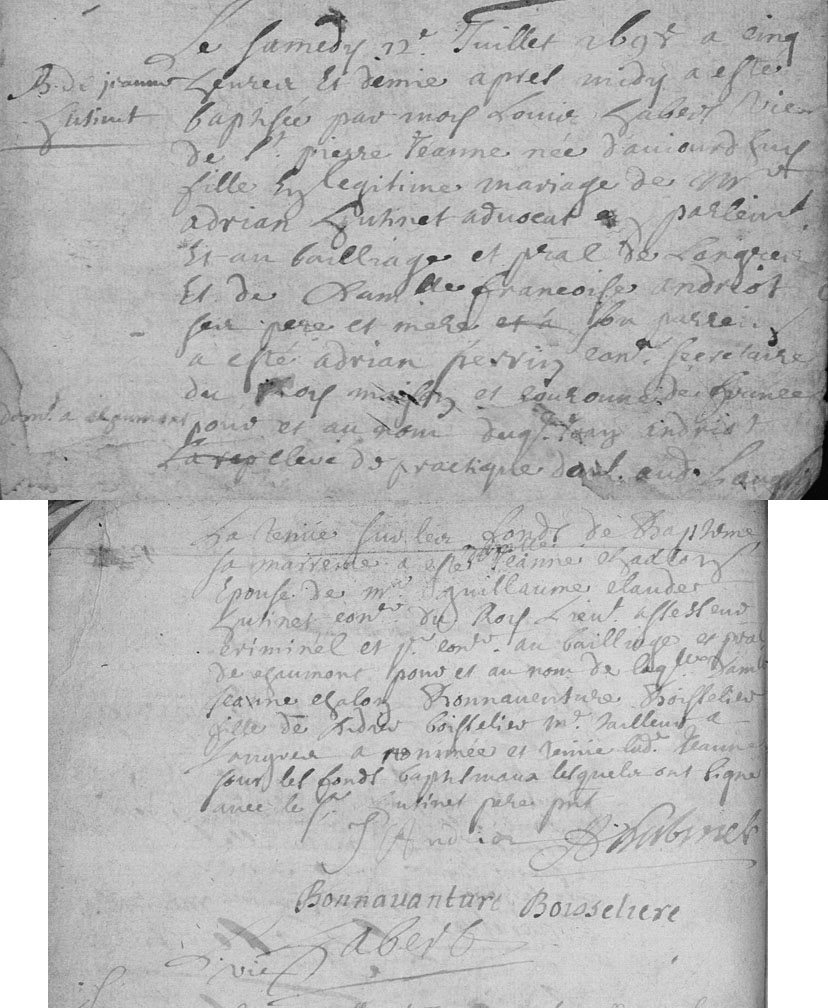 Le samedy 12e. Juillet 1698 a cinq
B. de jeanne
heures et demie apres midy a esté
hutinet
baptisée par moy Louis habert vic
de St. pierre Jeanne née d'aujourdhuy
fille en legitime mariage de Mr
adrian hutinet advocat en parlemt
Et au bailliage et pral de Langres
Et de Dam.lle francoise andriot
ses pere et mere et a son parrein
a esté adrian perrin conr. secretaire
du Roy maison et couronne de france
demt. a chaumont
pour et au nom duql. andriot
La rep eleve de practique dud. Langres
La tenüe sur les fonds de Bapteme
sa marreine a esté Jeanne chalon
Epouse de mr. guillaume claude
hutinet conr. du Roy Lieut. assesseur
criminel et pr. conr. au bailliage et pral
de chaumont pour et au nom de laqlle dam
jeanne chalon Bonnaventure Boisselier
fille de boisselier mr. tailleur a
Langres a nommée et tenüe lad. Jeanne
sour les fonds baptismaux lesquels ont signé
avec le sr. hutinet pere pnt
J Andriot hutinet
Bonnauanture Boisseliere
habert
vic